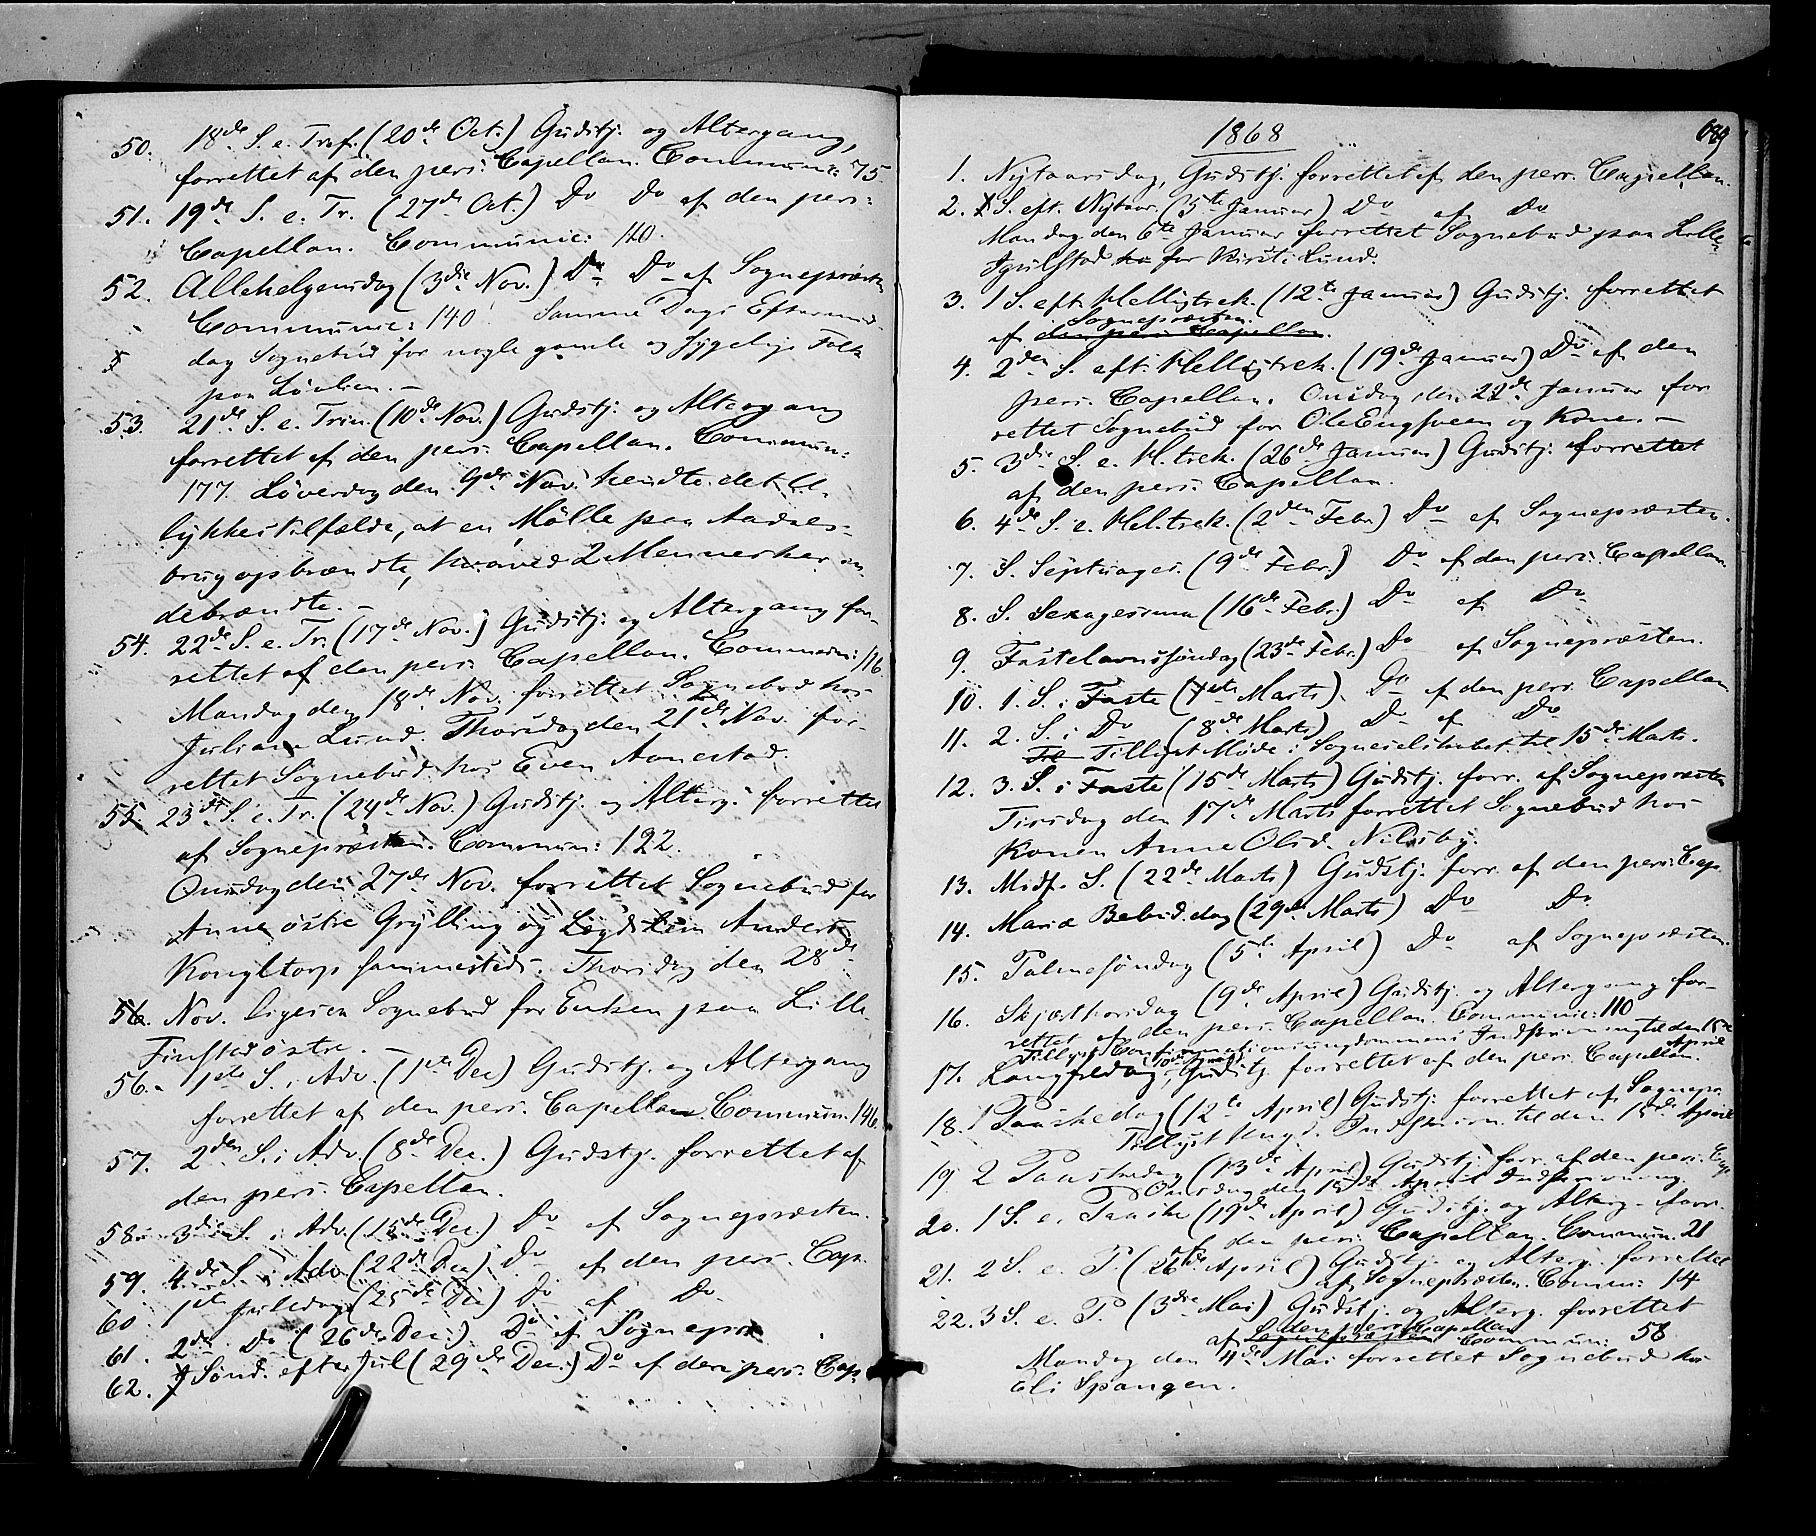 50. 18de S. e. Tref. (20de Oct.) Gudstj. og Altergang,
forrettet af den pers: Capellan. Communic: 75.
51. 19de S. e. Tr. (27de Oct.) Do Do af den pers:
Capellan. Communic: 140.
52. Allehelgensdag (3die Nov.) Do Do af Sognepræsten
Communic: 140. Samme Dags Eftermid-
dag Sognebud for nogle gamle og sygelige Folk
paa Løvlien. –
53. 21de S. e. Trin. (10de Nov.) Gudstj. og Altergang
forrettet af den pers: Capellan. Commun:
177. Løverdag den 9de Nov. hendte det U-
lykkestilfælde, at en Mølle paa Aadals-
brug opbrændte, hvorved 2 Mennesker in-
debrændte. –
54. 22de S. e. Tr. (17de Nov.) Gudstj. og Altergang for-
rettet af den pers: Capellan. Commun: 116
Mandag den 18de Nov. forrettet Sognebud hos
Julian Lund. Thorsdag den 21de Nov. for-
rettet Sognebud hos Even Aanestad.
55. 23de S. e. Tr. (24de Nov.) Gudstj. og Alterg: forrettet
af Sognepræsten. Commun: 122.
Onsdag den 27de Nov. forrettet Sognebud for
Anne østre Grylling og Anders
Kongltorp sammesteds. Thorsdag den 28de
56. Nov. ligesen Sognebud for paa Lille
Finstad østre. –
56. 1ste S. i Adv. (1ste Dec) Gudstj. og Altergang
forrettet af den pers: Capellan Commun. 146.
57. 2den S. i Adv. (8de Dec.) Gudstj. forrettet af
den pers: Capellan.
58. 3die S. i Adv. (15de Dec) Do af Sognepræsten.
59. 4de S. i Adv. (22de Dec) Do af den pers. Cap.
60. 1ste Juledag (25de Dec) Do af Do
61. 2den Do (26de Dec.) Do af Sognepræ
62. Sønd. efter Jul (29de Dec.) Do af den pers: Cap.
1868
1. Nytaarsdag, Gudstj. forrettet af den pers. Capellan.
2. S. eft. Nytaar. (5te Januar) Do af Do
Mandag den 6te Januar forrettet Sognebud paa Lille
for Kirsti Lund.
3. 1 S. eft. Helligtrek. (12te Januar) Gudstj. forrettet
Sognepræsten.
af den pers: Capellan.
4. 2den S. eft. Helligtrek. (19de Januar) Do af den
pers. Capellan. Onsdag den 22de Januar for
rettet Sognebud for Ole Engsveen og Kone. –
5. 3die S. e. H. trek. (26de Januar) Gudstj. forrettet
af den pers: Capellan.
6. 4de S. e. Hel. trek. (2den Febr.) Do af Sognepræsten.
7. S. Septuages. (9de Febr.) Do af den pers: Capellan
8. S. Sexagesima (16de Febr.) Do af Do
9. Fastelavnssöndag (23de Febr.) Do af Sognepræsten.
10. 1. S. i Faste (1ste Marts). Do af den pers. Capellan
11. 2. S. i Do (8de Marts) Do af Do
Tillyst Møde i Sogneselskabet til 15de Marts.
12. 3. S. i Faste (15de Marts) Gudstj. forr. af Sognepræsten
Tirsdag den 17de Marts forrettet Sognebud hos
Konen Anne Olsd. Nilsby.
13. Midf. S. (22de Marts) Gudstj. forr. af den pers: Cap.
14. Mariæ Bebud. dag (29de Marts) Do Do
15. Palmesöndag (5te April) Do af Sognepræsten.
16. Skjærthorsdag (9de April) Gudstj. og Altergang for-
rettet af den pers: Capellan. Communic: 110
Tillyst Confirmationsungdommens Indskrivning til den 15de April
17. Langfredag (10de April), Gudstj. forrettet af den pers. Capellan.
18. 1 Paaskedag (12te April) Gudstj. forrettet af Sognepr.
Tillyst Ungd. Indskrivn. til den 15de April
19. 2 Paaskedag (13de April) Gudstj. forr. af den pers: Cap.
Onsdag den 15de April Indskrivning.
20. 1 S. e. Paaske (19de April) Gudstj. og Alterg. forr.
af den pers: Capellan. Commun. 21
21. 2 S. e. P. (26de April) Gudstj. og Alterg. forrettet
af Sognepræsten. Comm: 14
22. 3 S. e. P. (3die Mai) Gudstj. og Alterg. forrettet
den pers: Capellan
af Sognepræsten Commun: 58
Mandag den 4de Mai forrettet Sognebud hos
Eli Spangen.